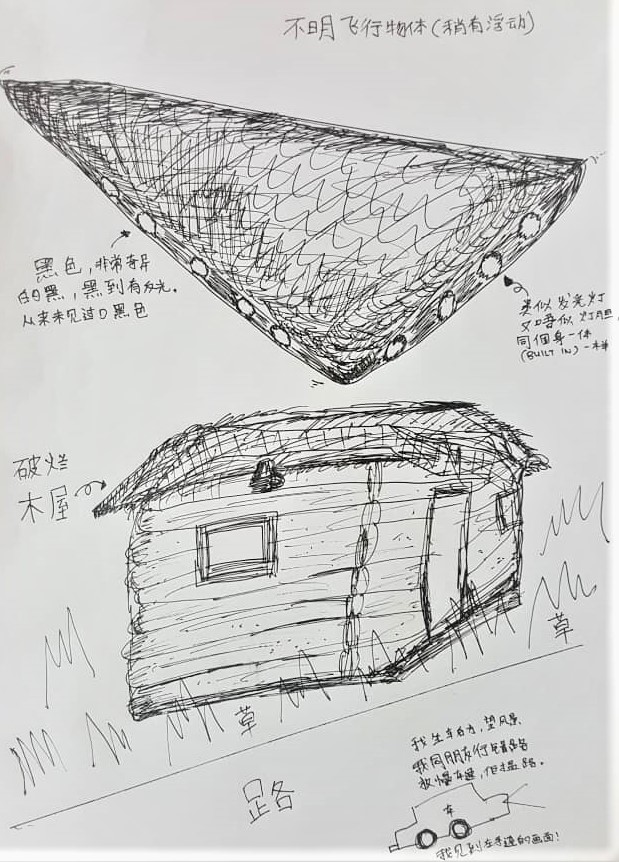 不明飞行物体(稍有浮动)
黑色,非常奇异
的黑,黑到有反光。
从来未见过口黑色
类似发光灯
又唔似灯胆,
同個身一体
(BUILT IN)一样
破烂
木屋
草
草
路
我坐车右边,望风景
我同朋友行錯路
放慢车速,
车
我见到在手边的画面!